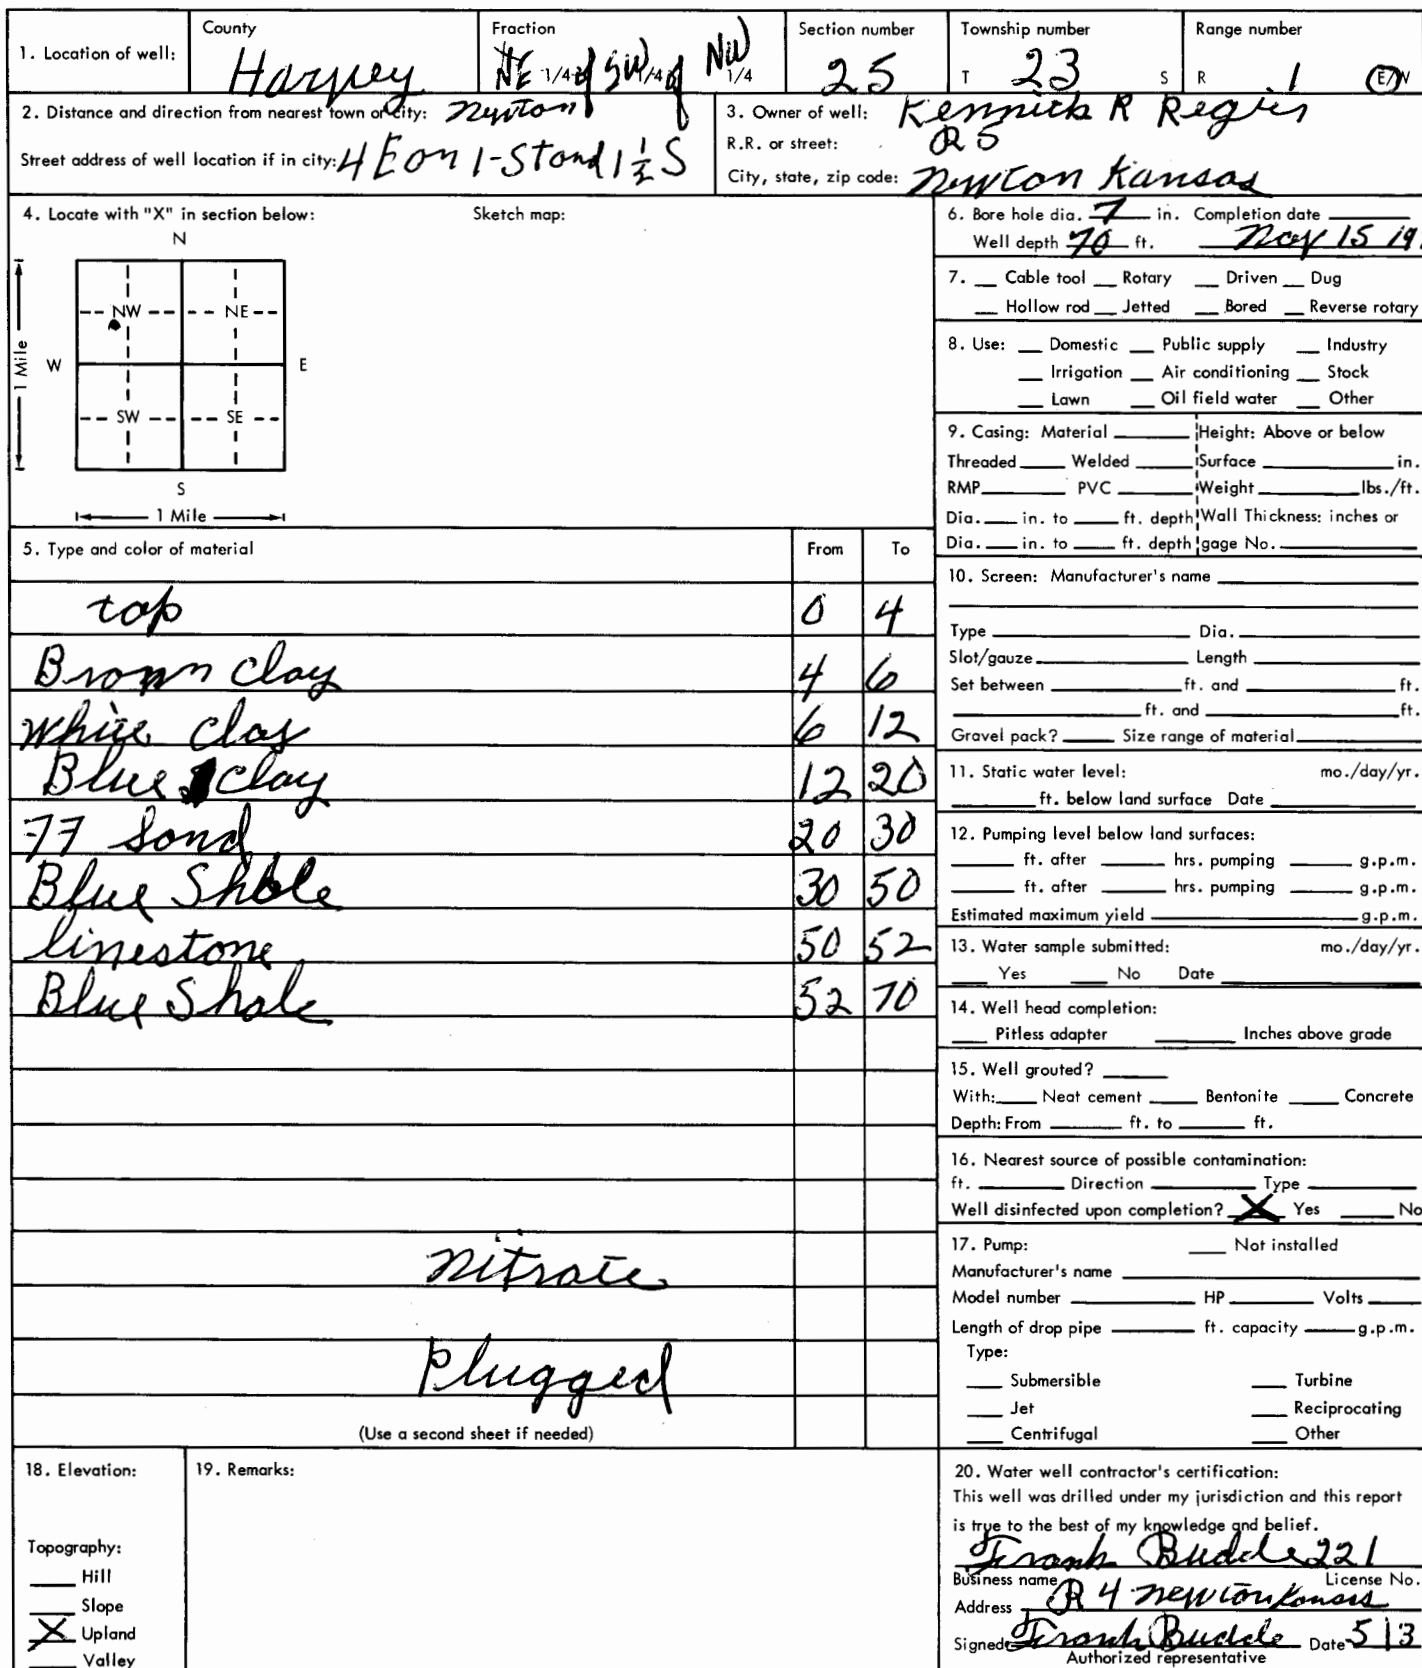 1. Location of well:
County
Harvey
Fraction
NE 1/4 of SW 1/4 of NW 1/4
Section number
25
Township number
T 23 S
Range number
R 1 E/W
2. Distance and direction from nearest town or city: Newton
Street address of well location if in city: 4 E on 1-St and 1 1/2 S
3. Owner of well: R Regier
R.R. or street: R 5
City, state, zip code: Newton Kansas
4. Locate with "X" in section below:
Sketch map:
N
NW NE
W E
1 Mile
SW SE
S
1 Mile
5. Type and color of material From To
top 0 4
Brown clay 4 6
white clay 6 12
Blue clay 12 20
77 Sand 20 30
Blue Shale 30 50
linestone 50 52
Blue Shale 52 70
nitrate
plugged
(Use a second sheet if needed)
6. Bore hole dia. 7 in. Completion date
Well depth 70 ft. Nov 15 19
7. Cable tool Rotary Driven Dug
Hollow rod Jetted Bored Reverse rotary
8. Use: Domestic Public supply Industry
Irrigation Air conditioning Stock
Lawn Oil field water Other
9. Casing: Material Height: Above or below
Threaded Welded Surface in.
RMP PVC Weight lbs./ft.
Dia. in. to ft. depth Wall Thickness: inches or
Dia. in. to ft. depth gage No.
10. Screen: Manufacturer's name
Type Dia.
Slot/gauze Length
Set between ft. and ft.
ft. and ft.
Gravel pack? Size range of material
11. Static water level: mo./day/yr.
ft. below land surface Date
12. Pumping level below land surfaces:
ft. after hrs. pumping g.p.m.
ft. after hrs. pumping g.p.m.
Estimated maximum yield g.p.m.
13. Water sample submitted: mo./day/yr.
Yes No Date
14. Well head completion:
Pitless adapter Inches above grade
15. Well grouted?
With: Neat cement Bentonite Concrete
Depth: From ft. to ft.
16. Nearest source of possible contamination:
ft. Direction Type
Well disinfected upon completion? X Yes No
17. Pump: Not installed
Manufacturer's name
Model number HP Volts
Length of drop pipe ft. capacity g.p.m.
Type:
Submersible Turbine
Jet Reciprocating
Centrifugal Other
18. Elevation:
Topography:
Hill
Slope
X Upland
Valley
19. Remarks:
20. Water well contractor's certification:
This well was drilled under my jurisdiction and this report
is true to the best of my knowledge and belief.
Frank Budde 221
Business name License No.
Address R 4 Newton Kansas
Signed Frank Budde Date 5 13
Authorized representative